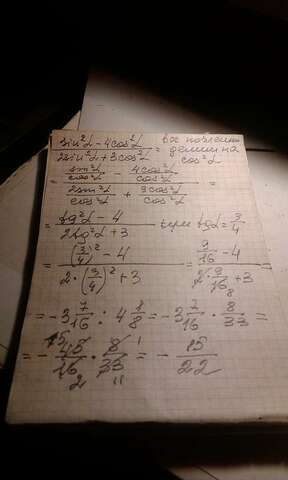 sin²α - 4cos²α / 2sin²α + 3cos²α = все почленно делим на cos²α
= sin²α/cos²α - 4cos²α/cos²α / 2sin²α/cos²α + 3cos²α/cos²α =
= tg²α - 4 / 2tg²α + 3 при tgα = 3/4
= (3/4)² - 4 / 2·(3/4)² + 3 = 9/16 - 4 / 2·9/16 8 + 3 =
= -3 7/16 : 4 1/8 = -3 7/16 · 8/33 =
= - 15 / 2 · 8 1 / 33 11 = - 15/22